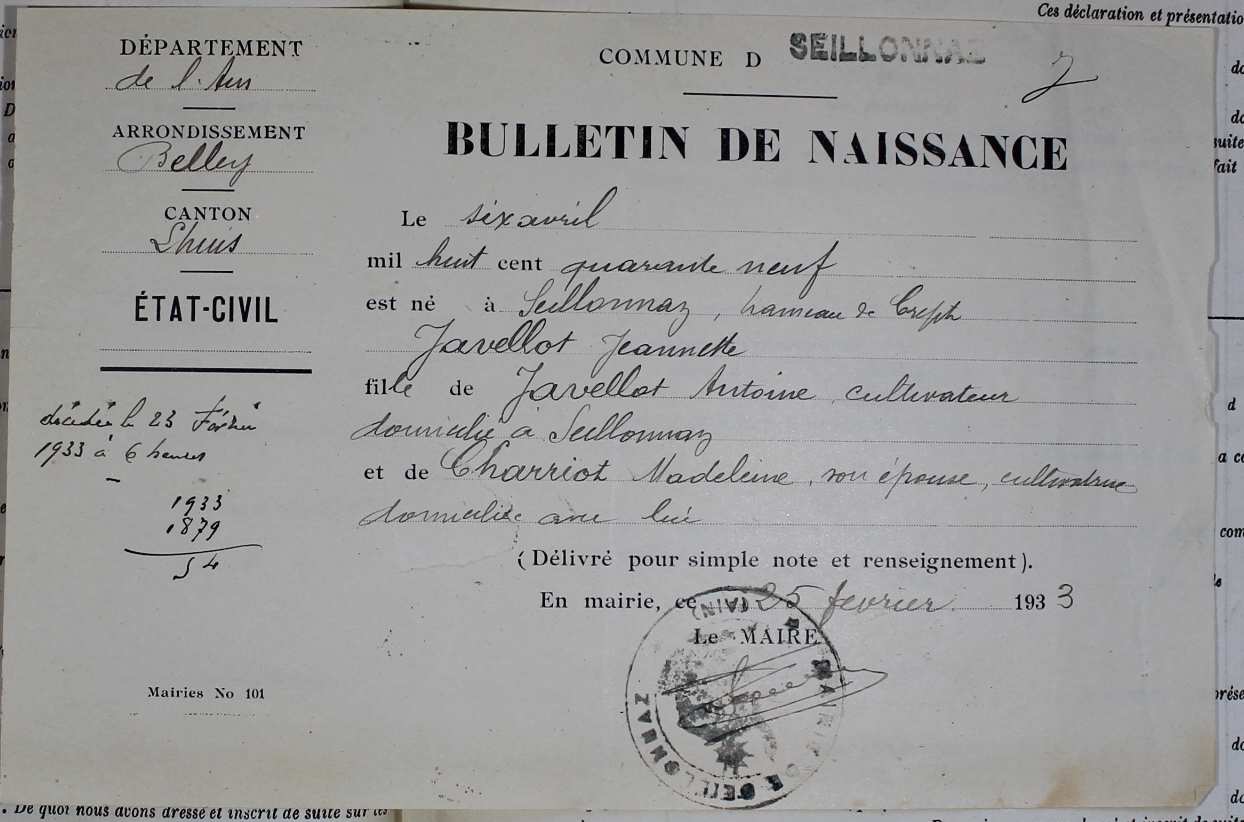 Ces déclaration et présentatio
DÉPARTEMENT
de l'Ain
ARRONDISSEMENT
Belley
CANTON
Lhuis
ÉTAT-CIVIL
décédée le 23 Février
1933 à 6 heures
1933
1879
54
Mairies No 101
COMMUNE D SEILLONNAZ
BULLETIN DE NAISSANCE
Le six avril
mil huit cent quarante neuf
est né à Seillonnaz, hameau de Crept
Javellot Jeannette
fille de Javellot Antoine, cultivateur
domicilié à Seillonnaz
et de Charriot Madeleine, son épouse, cultivatrice
domiciliée avec lui
(Délivré pour simple note et renseignement).
En mairie, ce 25 février 1933
Le MAIRE
MAIRIE DE SEILLONNAZ (AIN)
. De quoi nous avons dressé et inscrit de suite sur les